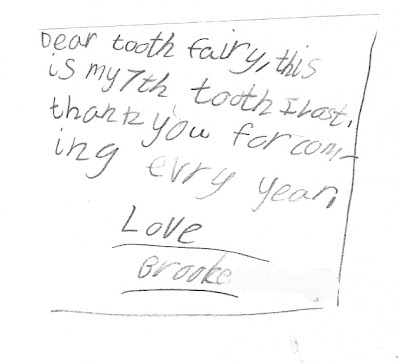 Dear tooth fairy, this
is my 7th tooth I lost.
thank you for com-
ing evry year,
Love
Brooke